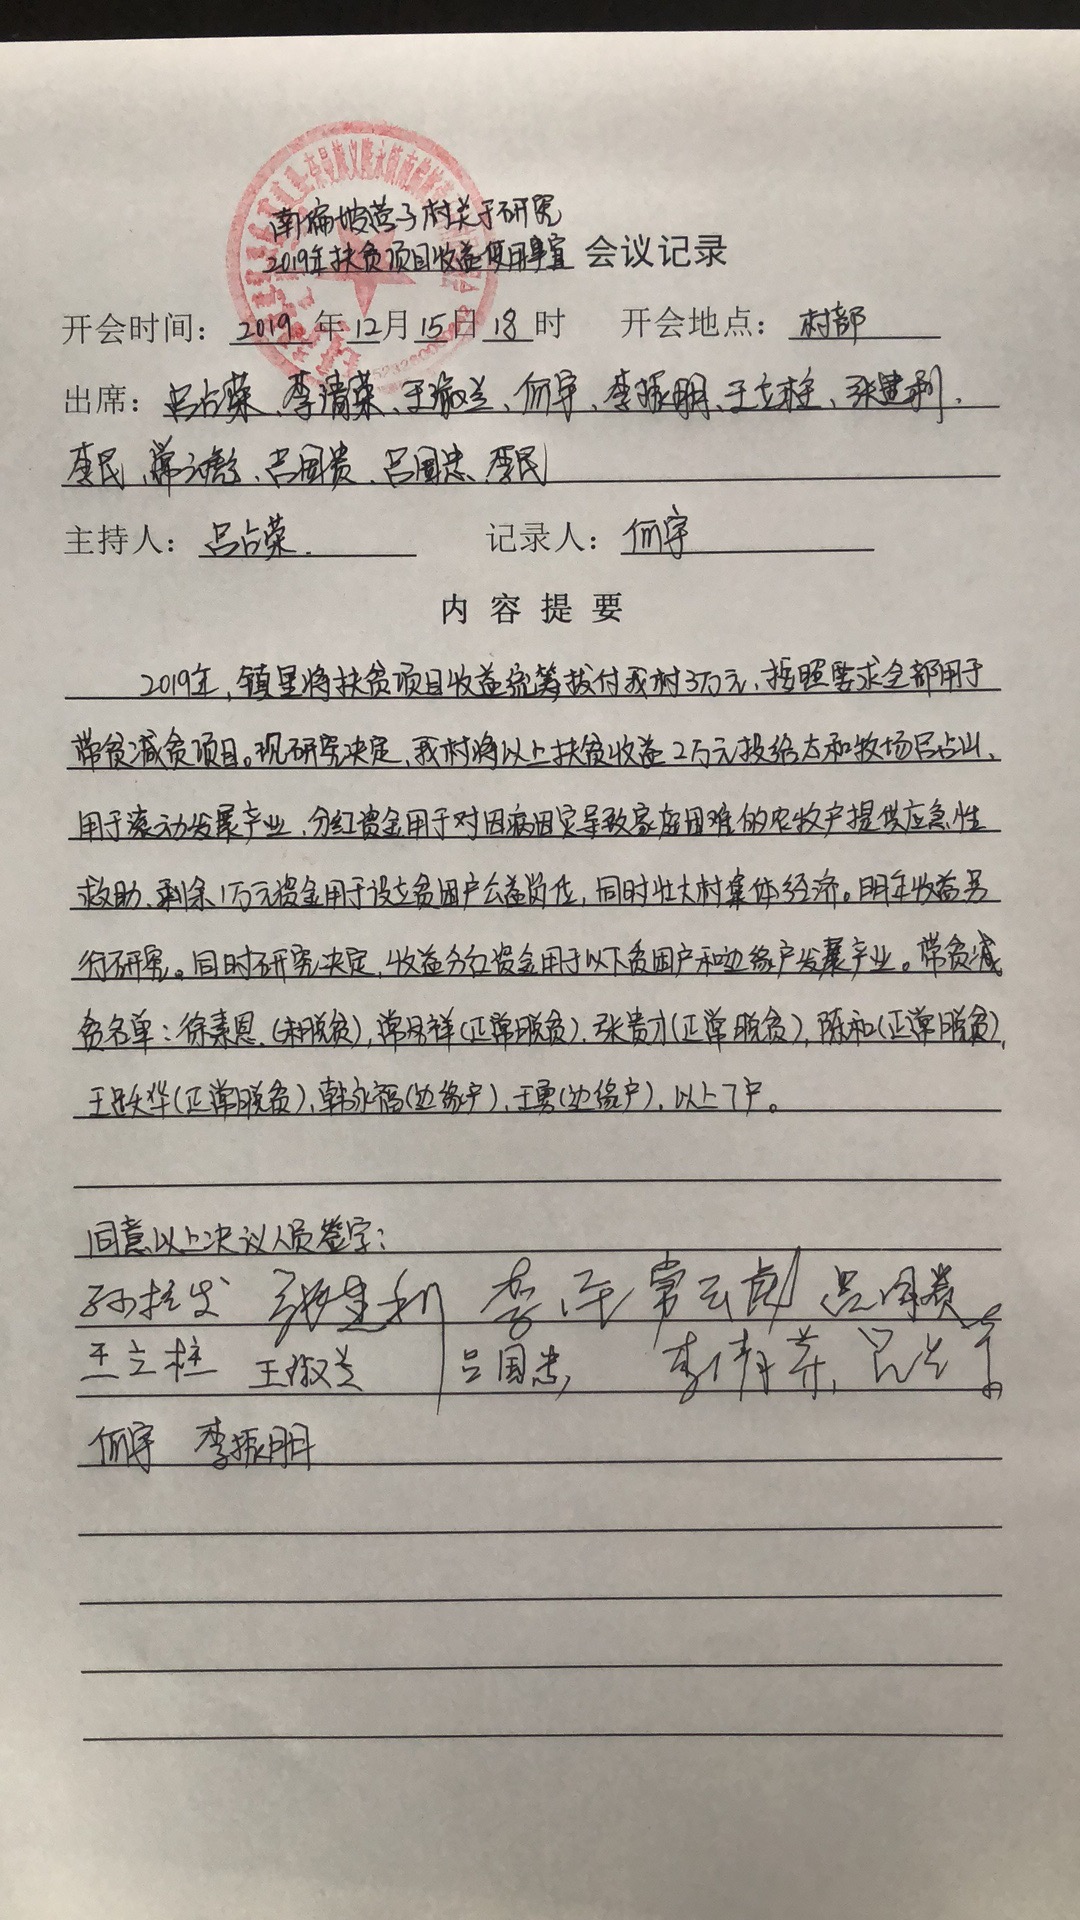 南偏坡营子村关于研究
2019年扶贫项目收益使用事宜 会议记录
开会时间：2019年12月15日18时 开会地点：村部
出席：吕占荣、李清荣、王淑兰、何宇、李振朋、王立柱、张建利、
李民、常云彪、吕国贵、吕国忠、李民
主持人：吕占荣. 记录人：何宇
内容提要
2019年，镇里将扶贫项目收益统筹拔付我村3万元、按照要求全部用于
带贫减贫项目。现研究决定、我村将以上扶贫收益2万元投给太和牧场吕占山、
用于滚动发展产业、分红资金用于对因病因灾导致家庭困难的农牧户提供应急性
救助、剩余1万元资金用于设立贫困户公益岗位，同时壮大村集体经济。明年收益另
行研究。同时研究决定，收益分红资金用于以下贫困户和边缘户发展产业。带贫减
贫名单：徐素恩(未脱贫)，常国祥(正常脱贫)、张贵才(正常脱贫)，陈和(正常脱贫)，
王跃华(正常脱贫)，韩永福(边缘户)，王勇(边缘户)，以上7户。
同意以上决议人员签字：
张建利 李 常云彪 吕国贵
王立柱 王淑兰 吕国忠 李清荣 吕占荣
何宇 李振朋